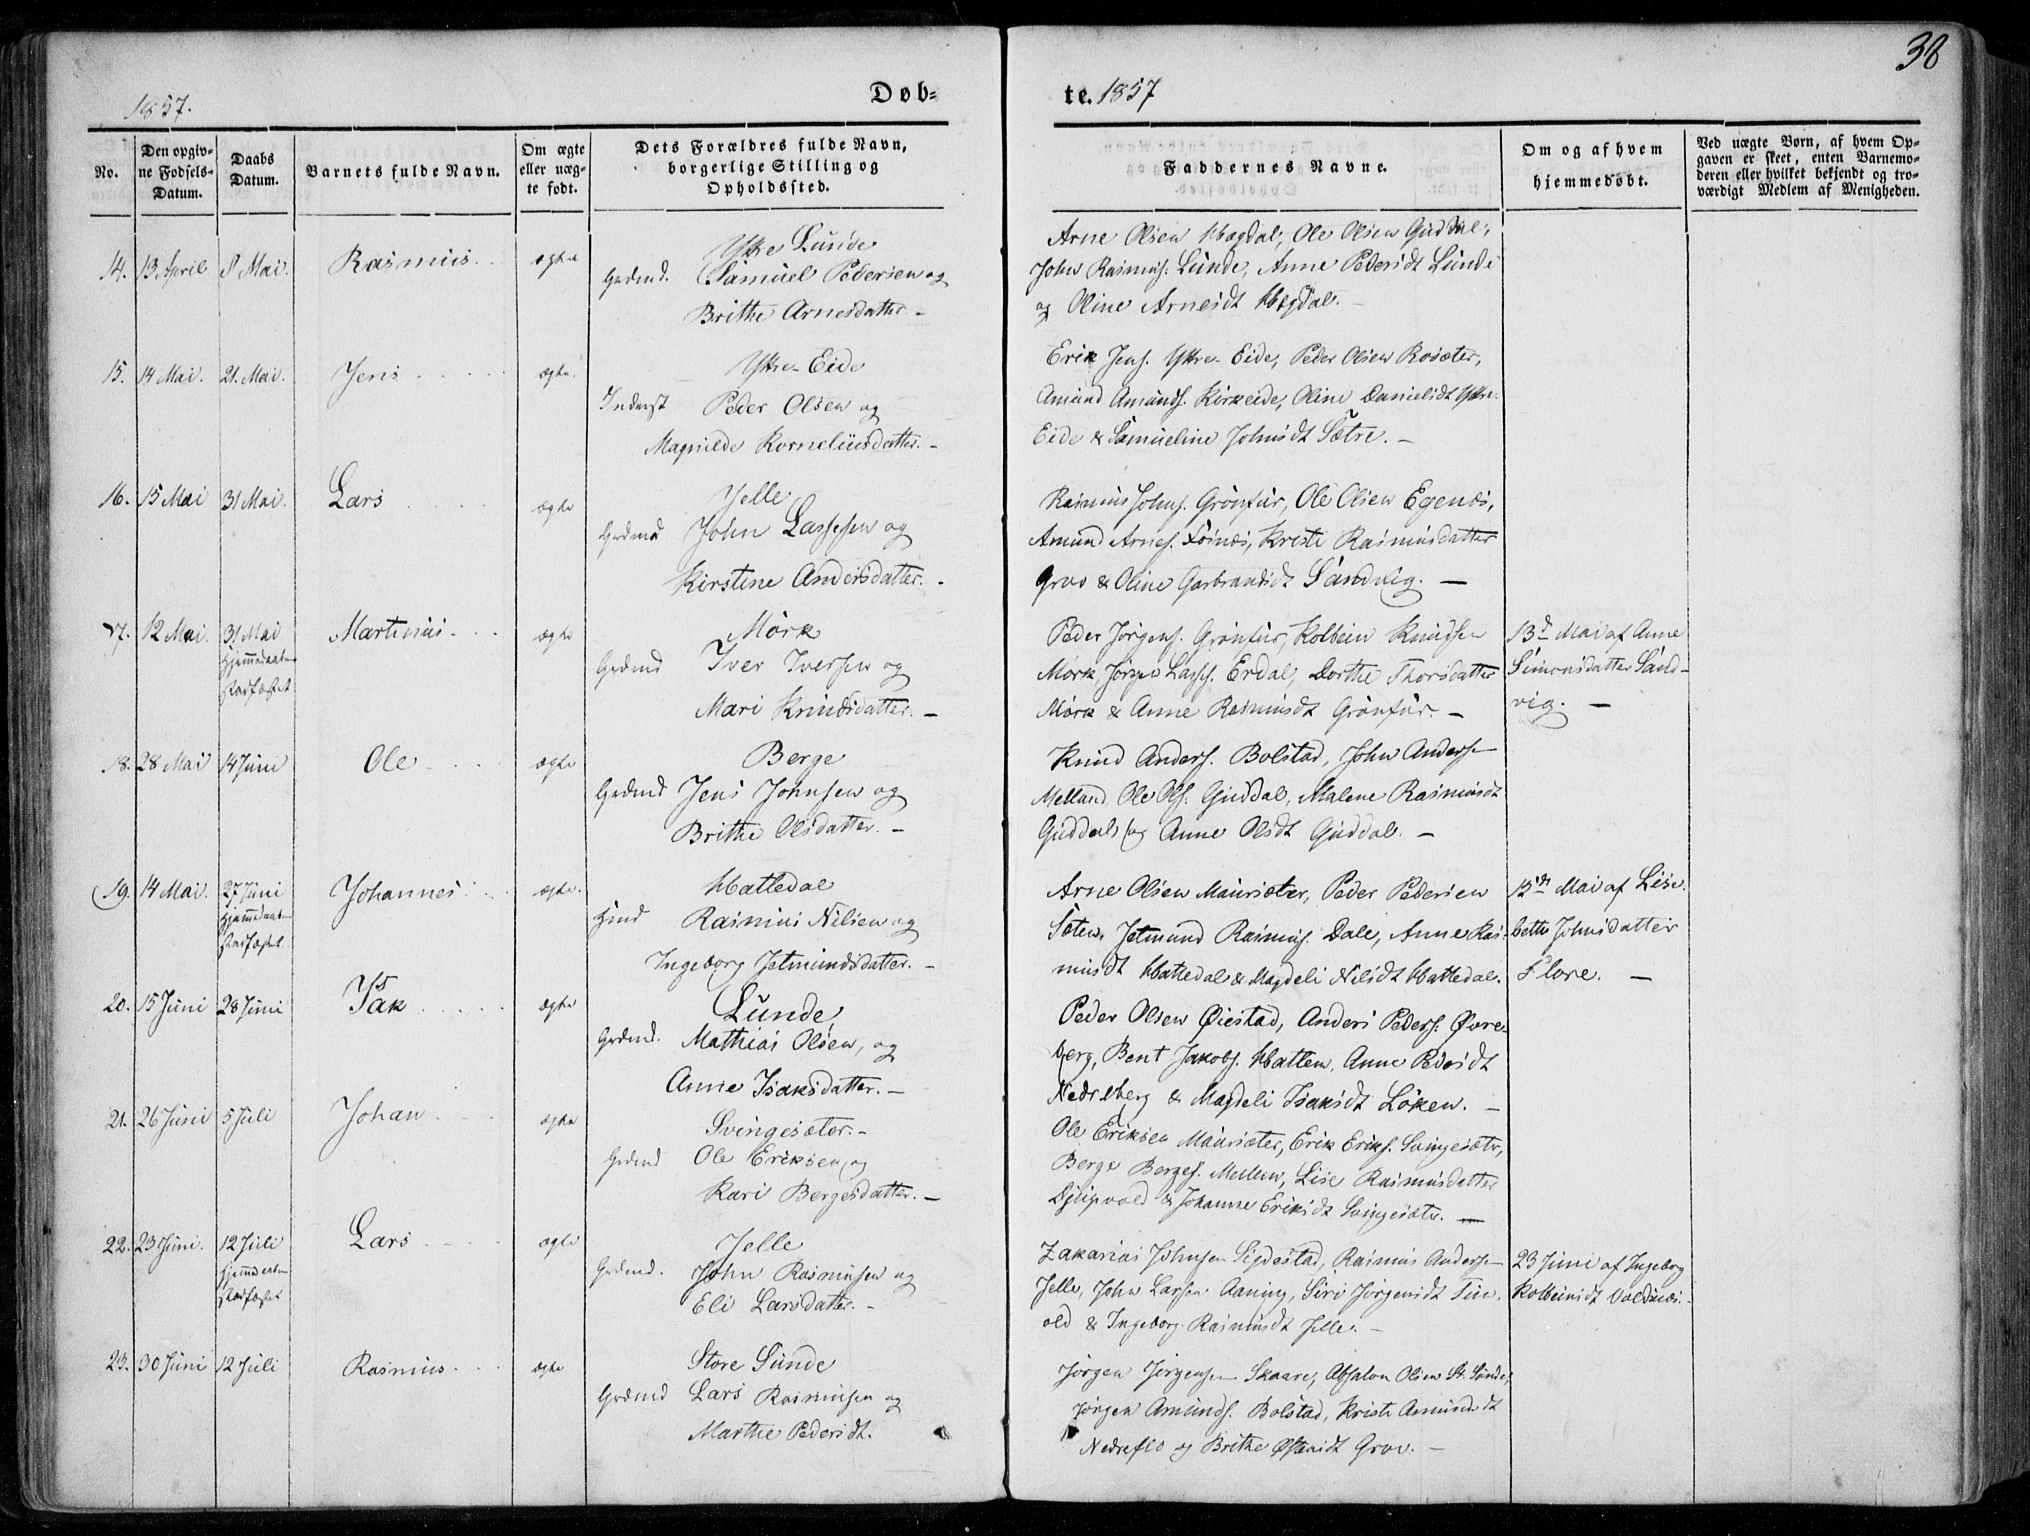 38
1857.
Døb-
te. 1857
No.
Den opgiv-
ne Fødsels-
Datum.
Daabs
Datum.
Barnets fulde Navn.
Om ægte
eller uæg-
te født.
Dets Forældres fulde Navn,
borgerlige Stilling og
Opholdssted.
Faddernes Navne.
Om og af hvem
hjemmedøbt.
Ved uægte Børn, af hvem Op-
gaven er skeet, enten Barnemo-
deren eller hvilket bekjendt og tro-
værdigt Medlem af Menigheden.
14. 13 April 8 Mai. Rasmus ægte
Yttre Lunde
Grdmd. Samuel Pedersen og
Brithe Arnesdatter. -
Arne Olsen Hægdal, Ole Olsen Guddal,
John Rasmus. Lunde, Anne Pedersdt Lunde
og Oline Arnesdt Hægdal. -
15. 14 Mai. 21. Mai. Jens ægte.
Yttre Eide
Inderst Peder Olsen og
Magnilde Korneliusdatter. -
Erik Jens. Yttre Eide, Peder Olsen Rosæter,
Amund Amunds. Kirkeide, Oline Danielsdt Yttre
Eide & Samueline Johnsdt Sætre. -
16. 15 Mai 31 Mai. Lars ægte
Jelle
Grdmd John Lassesen og
Kirstine Andersdatter. -
Rasmus Johns. Grønfur, Ole Olsen Egenæs,
Amund Arnes. Fosnæs, Kristi Rasmusdatter
Grov & Oline Garbrandsdt Sandvig. -
17. 12 Mai. 31 Mai Martinus ægte
Hjemmedaaben
stadfæstet
Mørk
Grdmd Iver Iversen og
Mari Knudsdatter. -
Peder Jørgens. Grønfur, Kolbein Knudsen
Mørk, Jørgen Lass. Erdal, Dorthe Thorsdatter
Mørk & Anne Rasmusdt Grønfur. -
13d Mai af Anne
Simonsdatter Sand-
vig. -
18. 28 Mai 14 Juni Ole ægte
Berge
Grdmd Jens Johnsen og
Brithe Olsdatter. -
Knud Anders. Bolstad, John Andersen
Melland, Ole Ols. Guddal, Malene Rasmusdt
Guddal og Anne Olsdt Guddal. -
19. 14 Mai. 27 Juni Johannes ægte.
Hjemmedaaben
stadfæstet
Hatledal
Hmd Rasmus Nilsen og
Ingeborg Jetmundsdatter. -
Arne Olsen Maursæter, Peder Pedersen
Sæten, Jetmund Rasmus. Dale, Anne Ras-
musdt Hatledal & Magdeli Nilsdt Hatledal.
15de Mai af Lise-
beth Johnsdatter
Flore. -
20. 15 Juni 28 Juni Isak ægte
Lunde
Grdmd. Mathias Olsen, og
Anne Isaksdatter. -
Peder Olsen Øiestad, Anders Peders. Øvre-
berg, Bent Jakobs. Hatlen, Anne Pedersdt
Nedreberg & Magdeli Isaksdt Løken. -
21. 26 Juni 5 Juli Johan ægte
Svingesæter. -
Grdmd Ole Eriksen og
Kari Bergesdatter. -
Ole Eriksen Maursæter, Erik Eriks. Svingesæter,
Berge Berges. Mellem, Lise Rasmusdatter
Djupvold & Johanne Eriksdt Svingesæter. -
22. 23 Juni. 12 Juli Lars ægte
Hjemmedaaben
stadfæstet
Jelle
Grdmd. John Rasmusen og
Eli Larsdatter. -
Zakarias Johnsen Sigdestad, Rasmus Andersen
Jelle, John Larsen Aaning, Siri Jørgensdt Tin-
old & Ingeborg Rasmusdt Jelle. -
23 Juni af Ingeborg
Kolbeinsdt Valdsnæs. -
23. 30 Juni 12 Juli Rasmus ægte
Store Sunde
Grdmd Lars Rasmusen og
Marthe Pedersdt.
Jørgen Jørgensen Skaare, Absalon Olsen St. Sunde,
Jørgen Amunds. Bolstad, Kristi Amundsdt
Nedreflo og Brithe Østensdt Grov. -